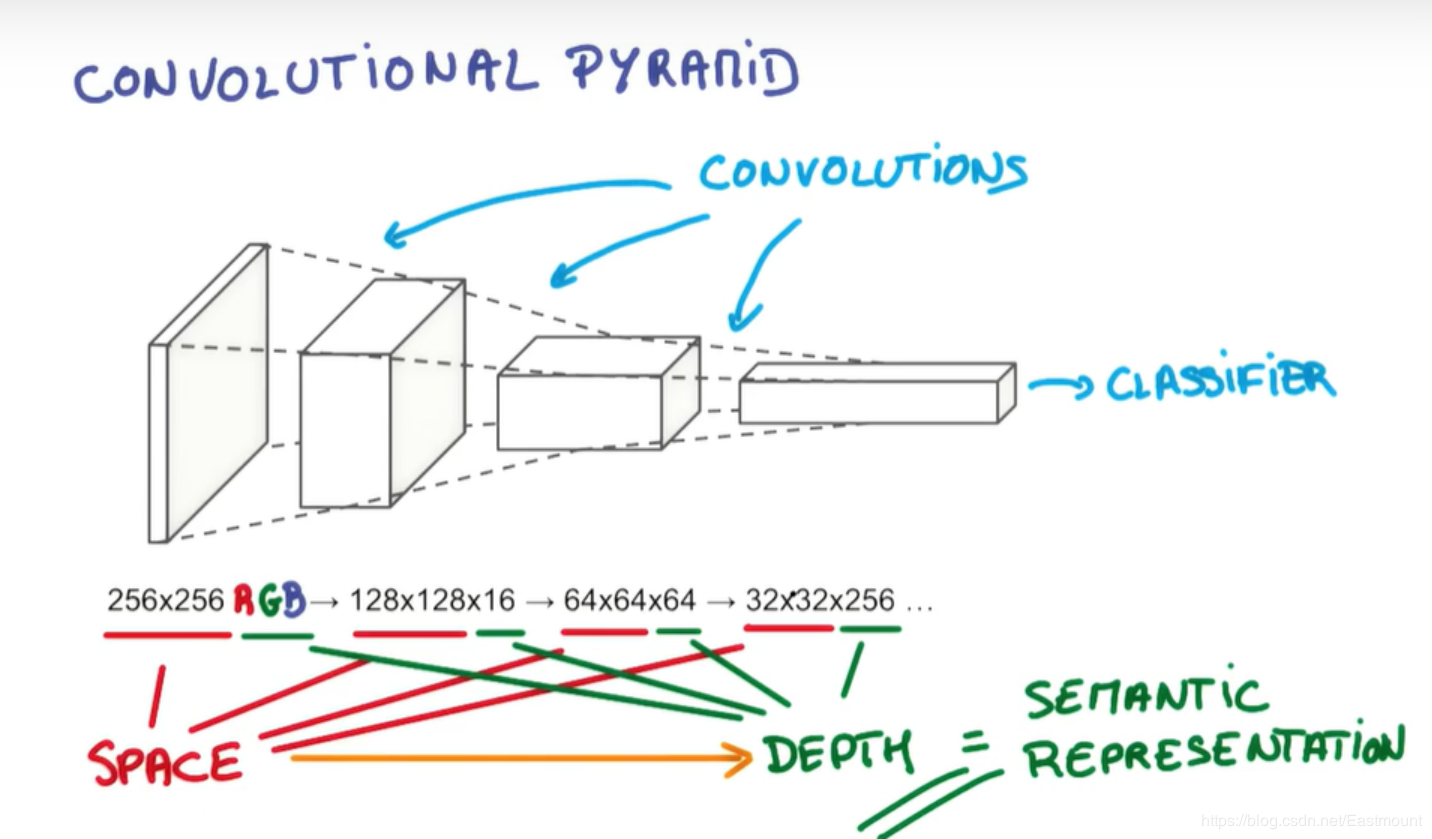 CONVOLUTIONAL PYRAMID
CONVOLUTIONS
CLASSIFIER
256x256 RGB → 128x128x16 → 64x64x64 → 32x32x256 ...
SPACE → DEPTH = SEMANTIC
REPRESENTATION
https://blog.csdn.net/Eastmount